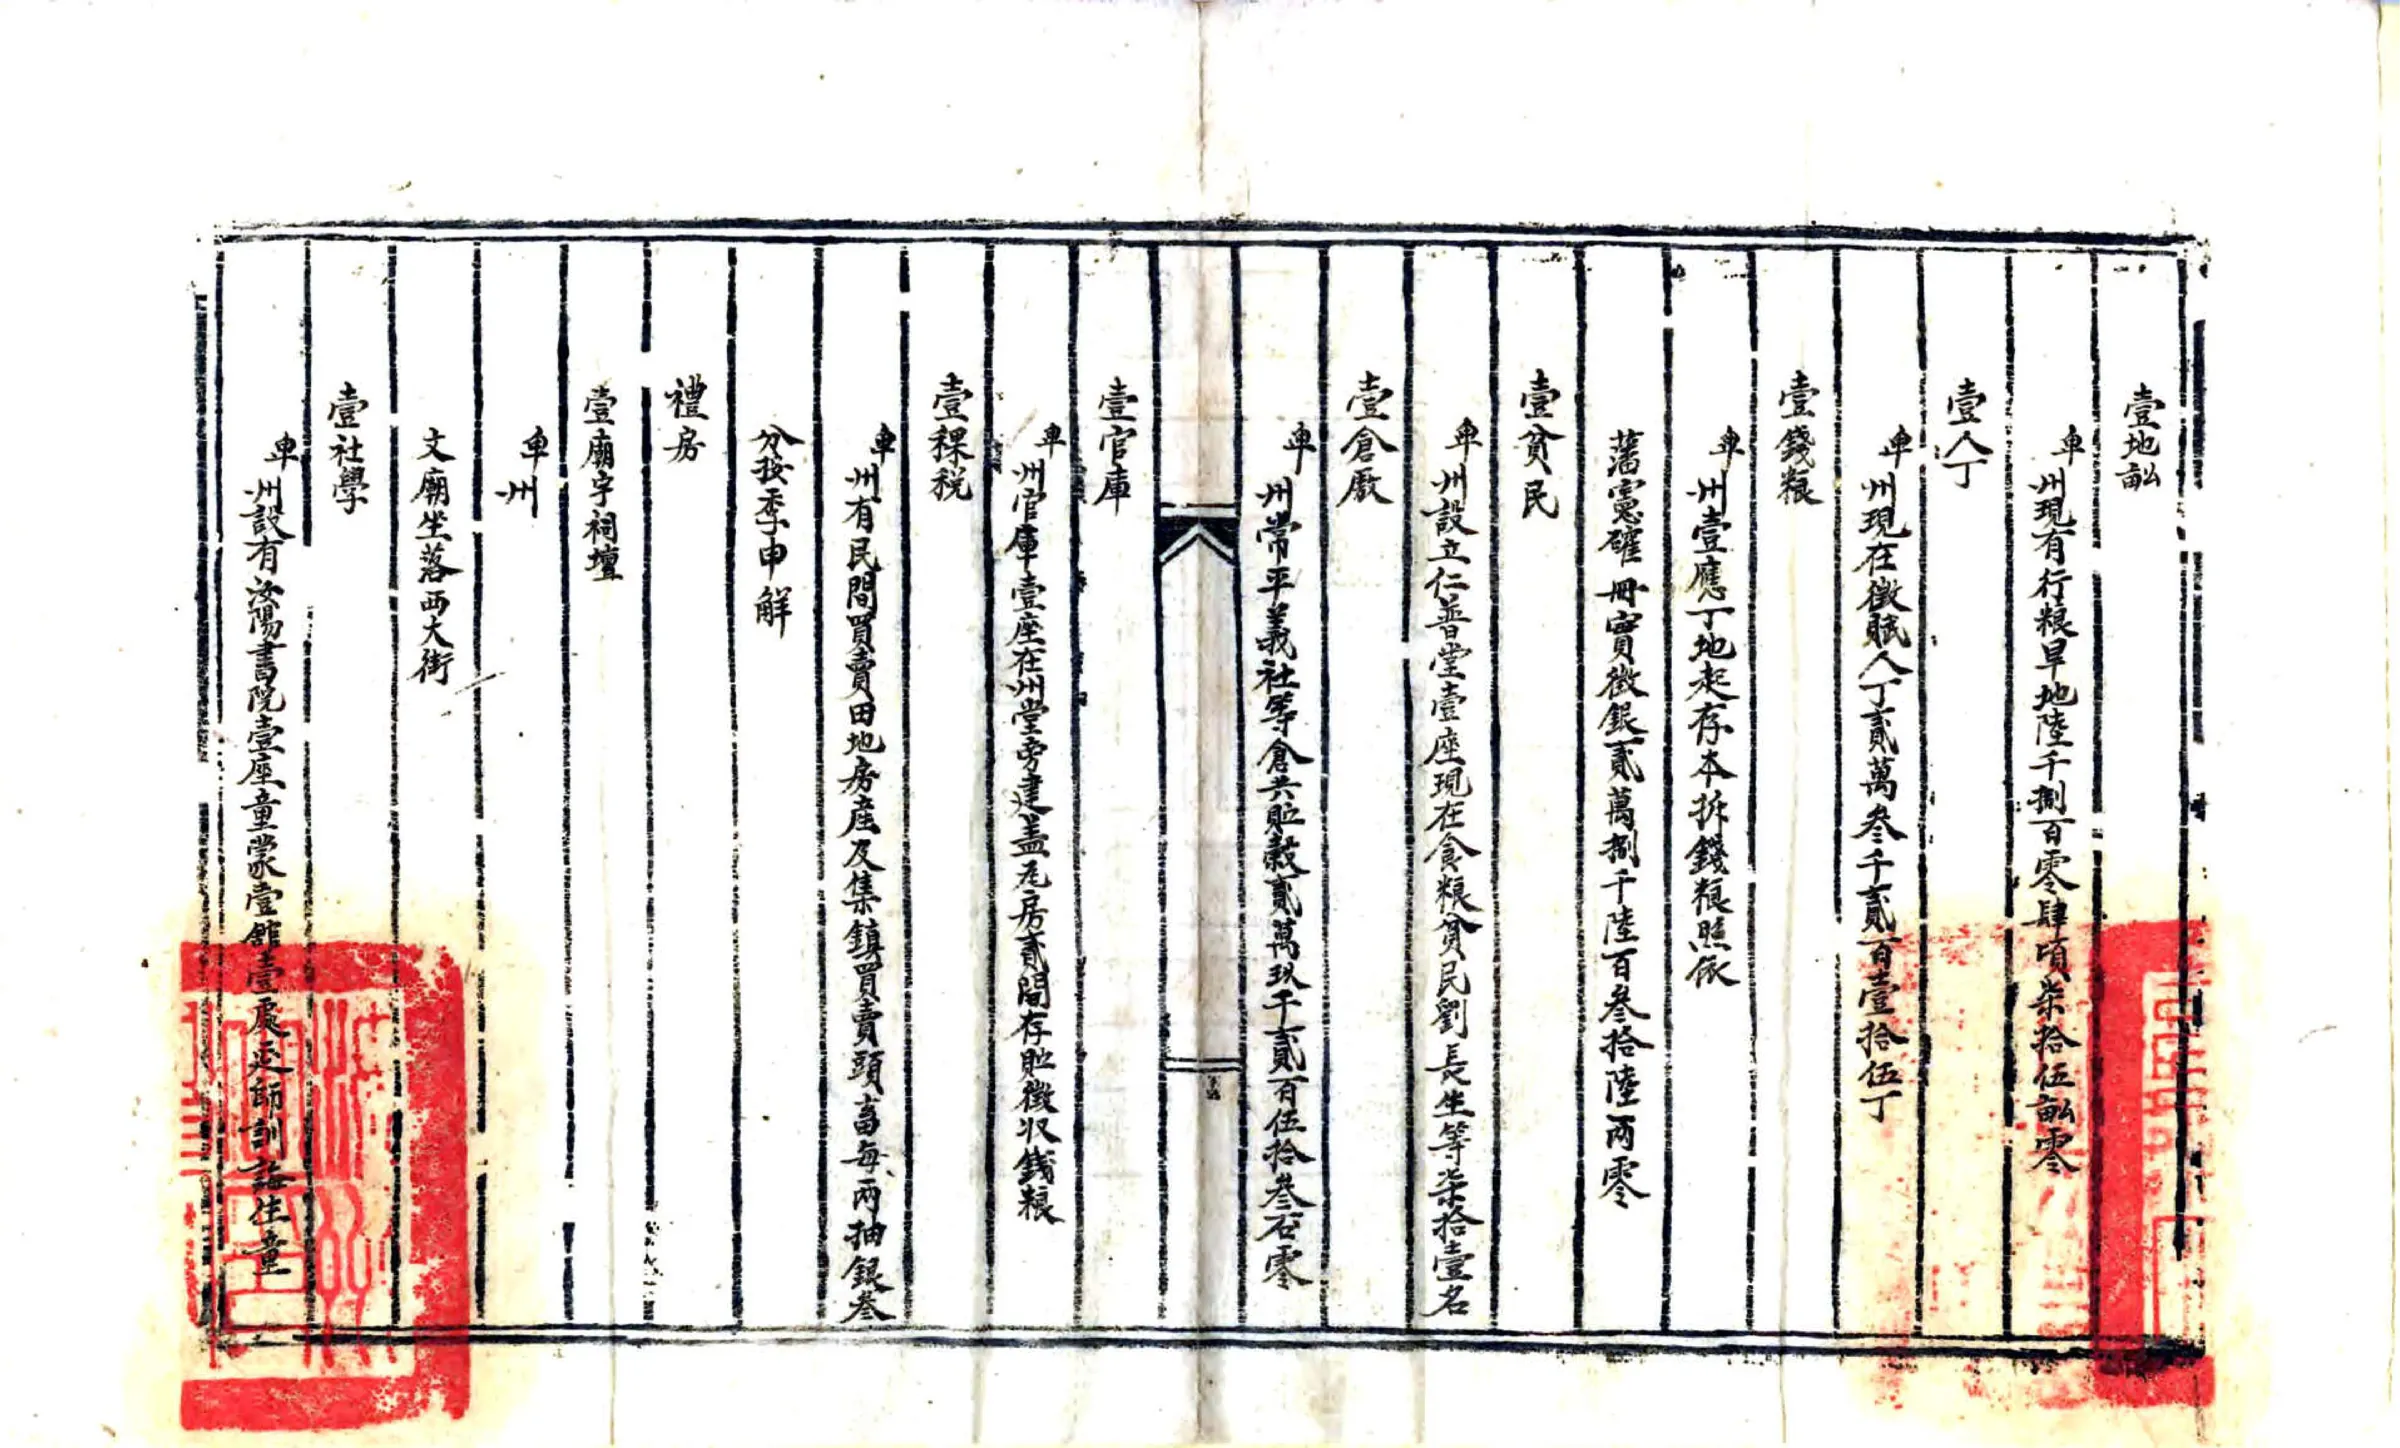 壹地畆
卑州現有行粮旱地陸千捌百零肆頃柒拾伍畆零
壹人丁
卑州現在徵賦人丁貳萬叁千貳百壹拾伍丁
壹錢粮
卑州壹應丁地起存本折錢粮照依
藩憲確冊實徵銀貳萬捌千陸百叁拾陸两零
壹貧民
卑州設立仁普堂壹座現在食粮貧民劉長生等柒拾壹名
壹倉厫
卑州常平義社等倉共貯穀貳萬玖千貳百伍拾叁石零
壹官庫
卑州官庫壹座在州堂旁建盖瓦房貳間存貯徵收錢粮
壹稞稅
卑州有民間買賣田地房産及集鎮買賣頭畜每两抽銀叁
分按季申解
禮房
壹廟宇祠壇
卑州
文廟坐落西大街
壹社學
卑州設有汝陽書院壹座童蒙壹館壹處延師訓誨生童